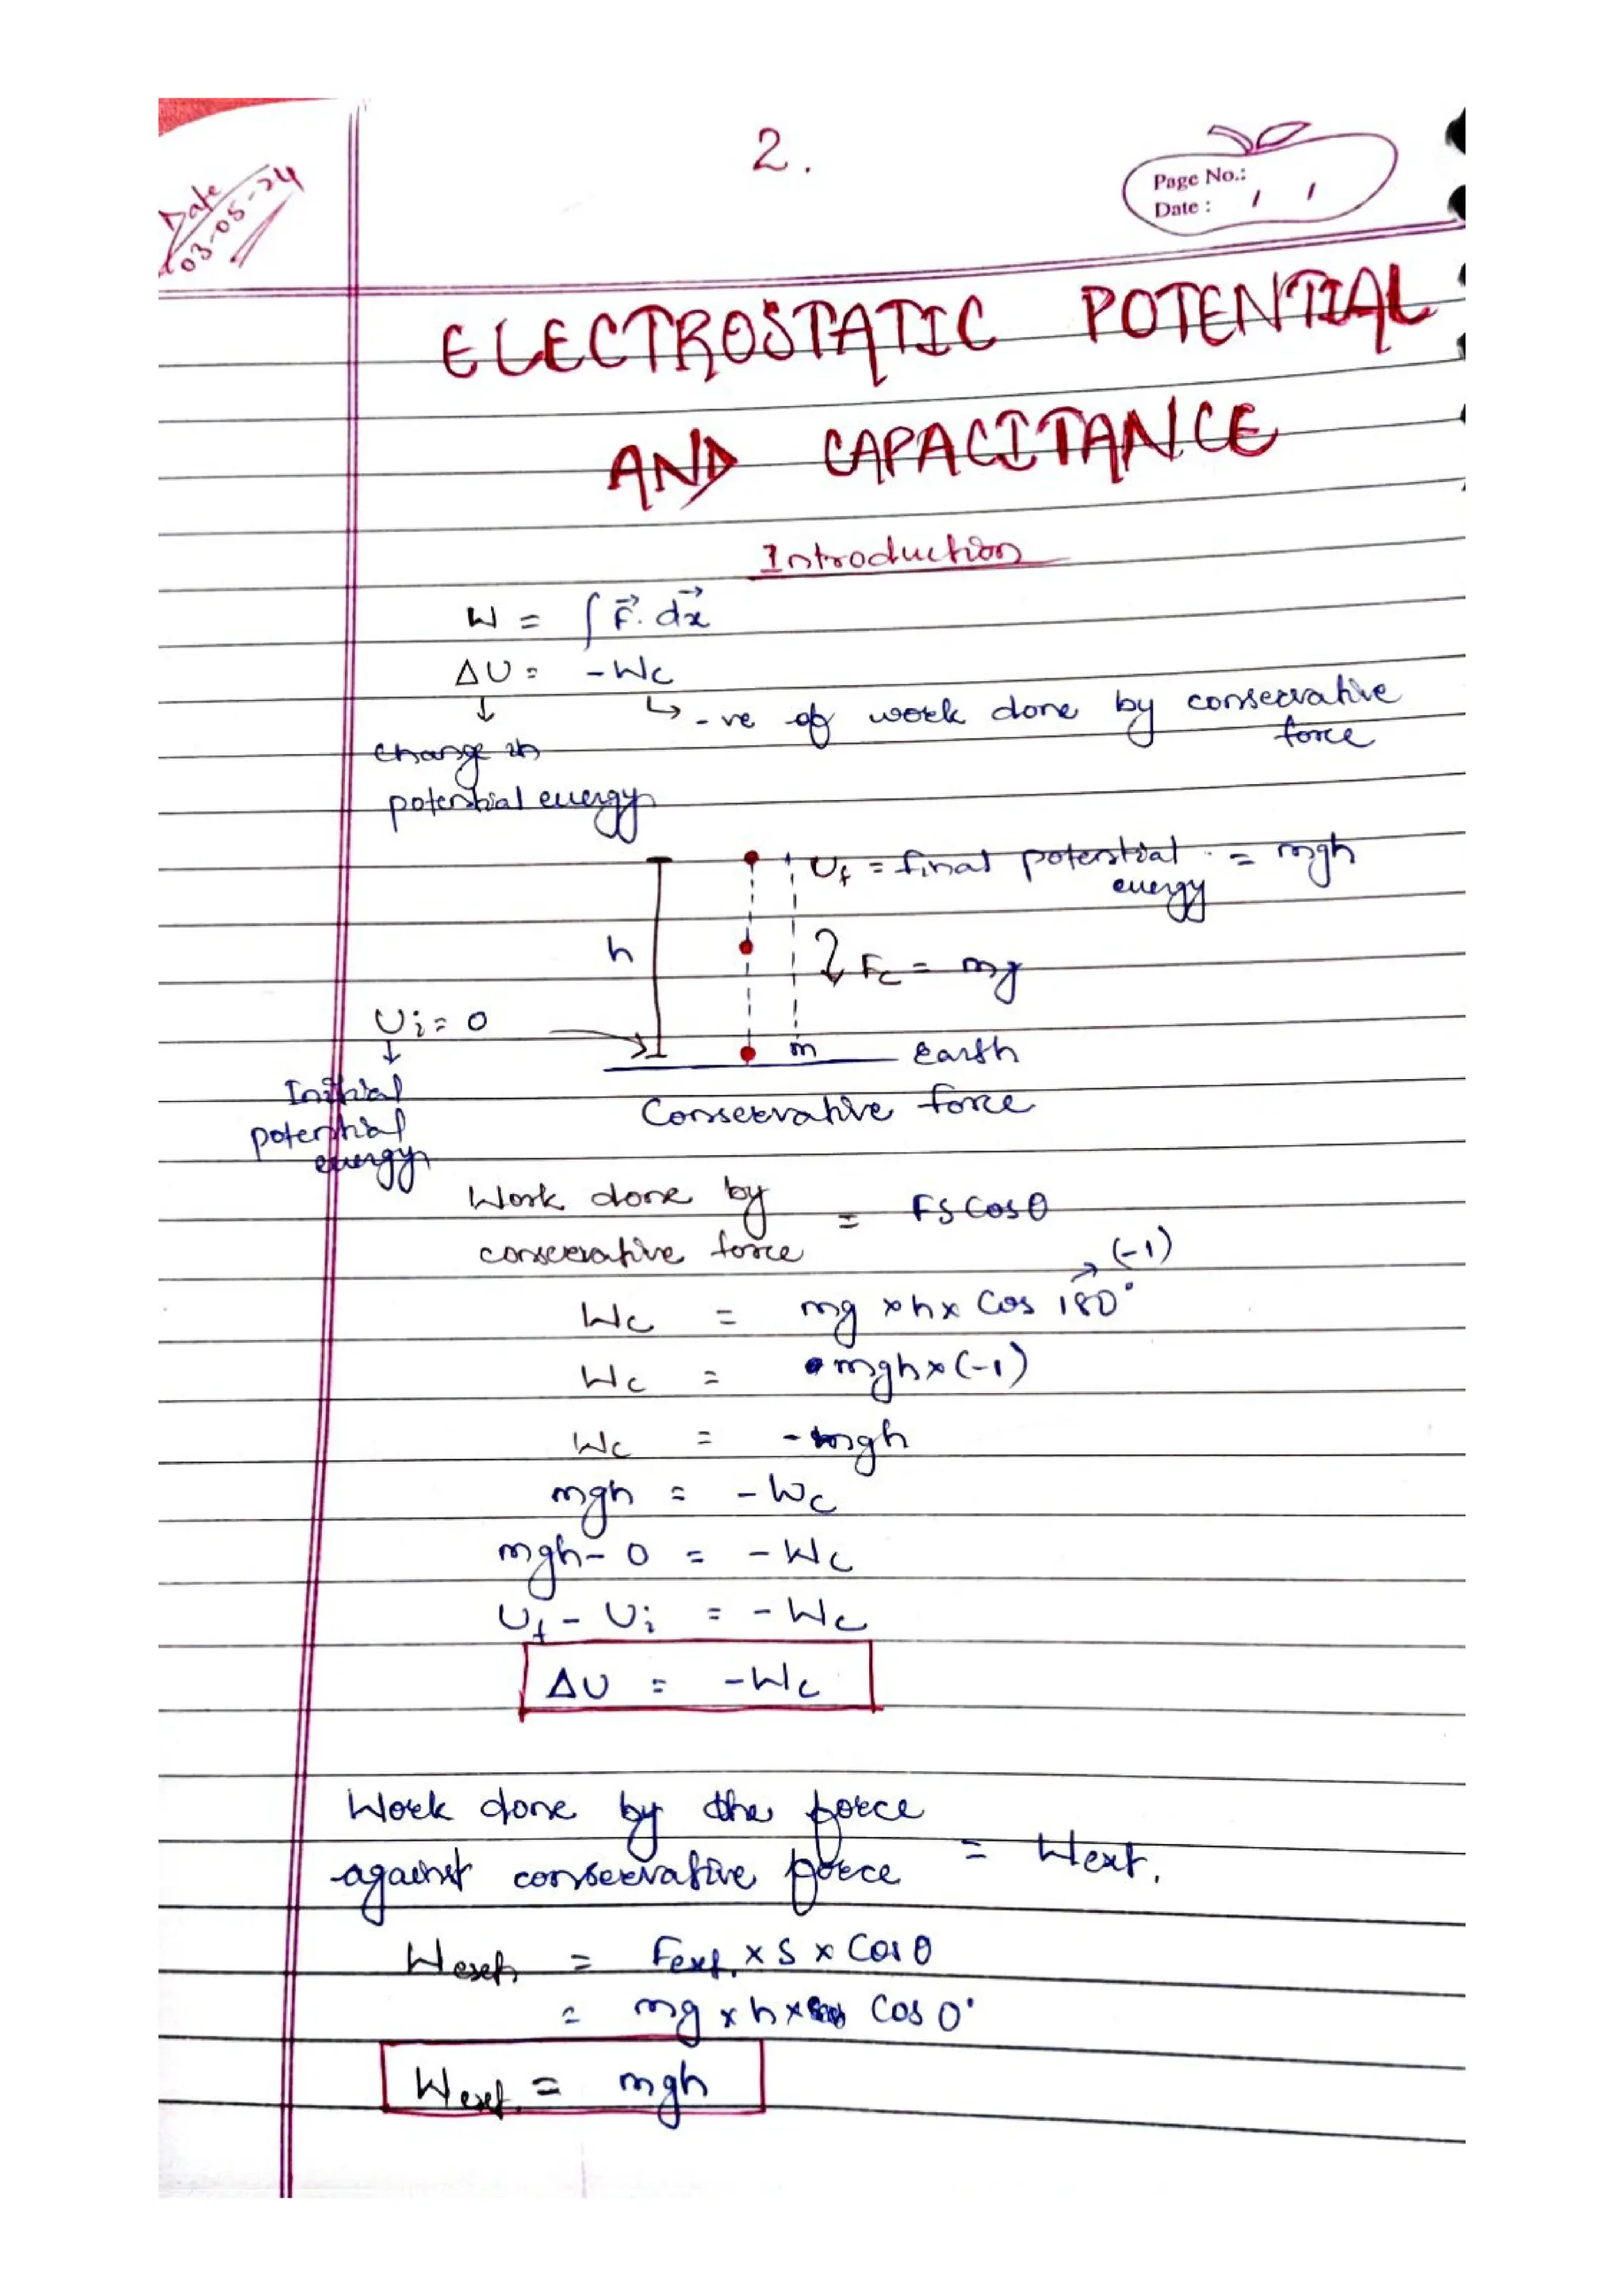 2.
Date
03-05-24
Page No.:
Date : / /
ELECTROSTATIC POTENTIAL
AND CAPACITANCE
Introduction
W = ∫ F⃗. dx⃗
ΔU = -Wc
↓ ↳ -ve of work done by conservative force
change in
potential energy
Uf = final potential energy = mgh
h
Fc = mg
Ui = 0
↓
Initial
potential
energy
m Earth
Conservative force
Work done by
conservative force = FS Cosθ
Wc = mg × h × Cos 180° → (-1)
Wc = mgh × (-1)
Wc = -mgh
mgh = -Wc
mgh - 0 = -Wc
Uf - Ui = -Wc
ΔU = -Wc
Work done by the force
against conservative force = Wext.
Wext. = Fext. × S × Cosθ
= mg × h × Cos 0°
Wext. = mgh